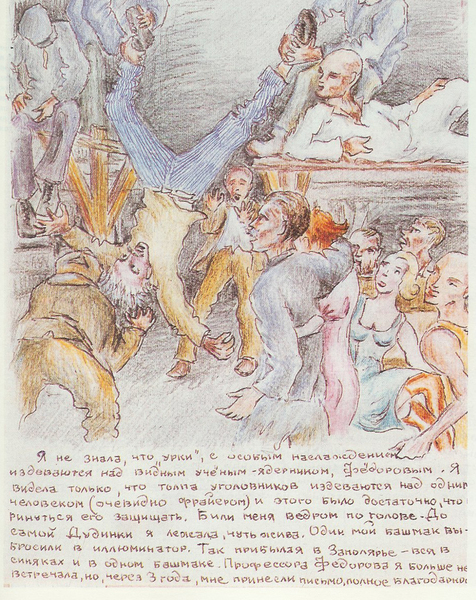 Я не знала, что "урки", с особым наслаждением
издеваются над видным учёным-ядерщиком, Фёдоровым. Я
видела только, что толпа уголовников издеваются над одним
человеком (очевидно фрайером) и этого было достаточно, что
ринуться его защищать. Били меня ведром по голове. До
самой Дудинки я лежала, чуть жива. Один мой башмак вы-
бросили в иллюминатор. Так прибылая в Заполярье - вся в
синяках и в одном башмаке. Профессора Фёдорова я больше не
встречала, но, через 3 года, мне принесли письмо, полное благодарнос